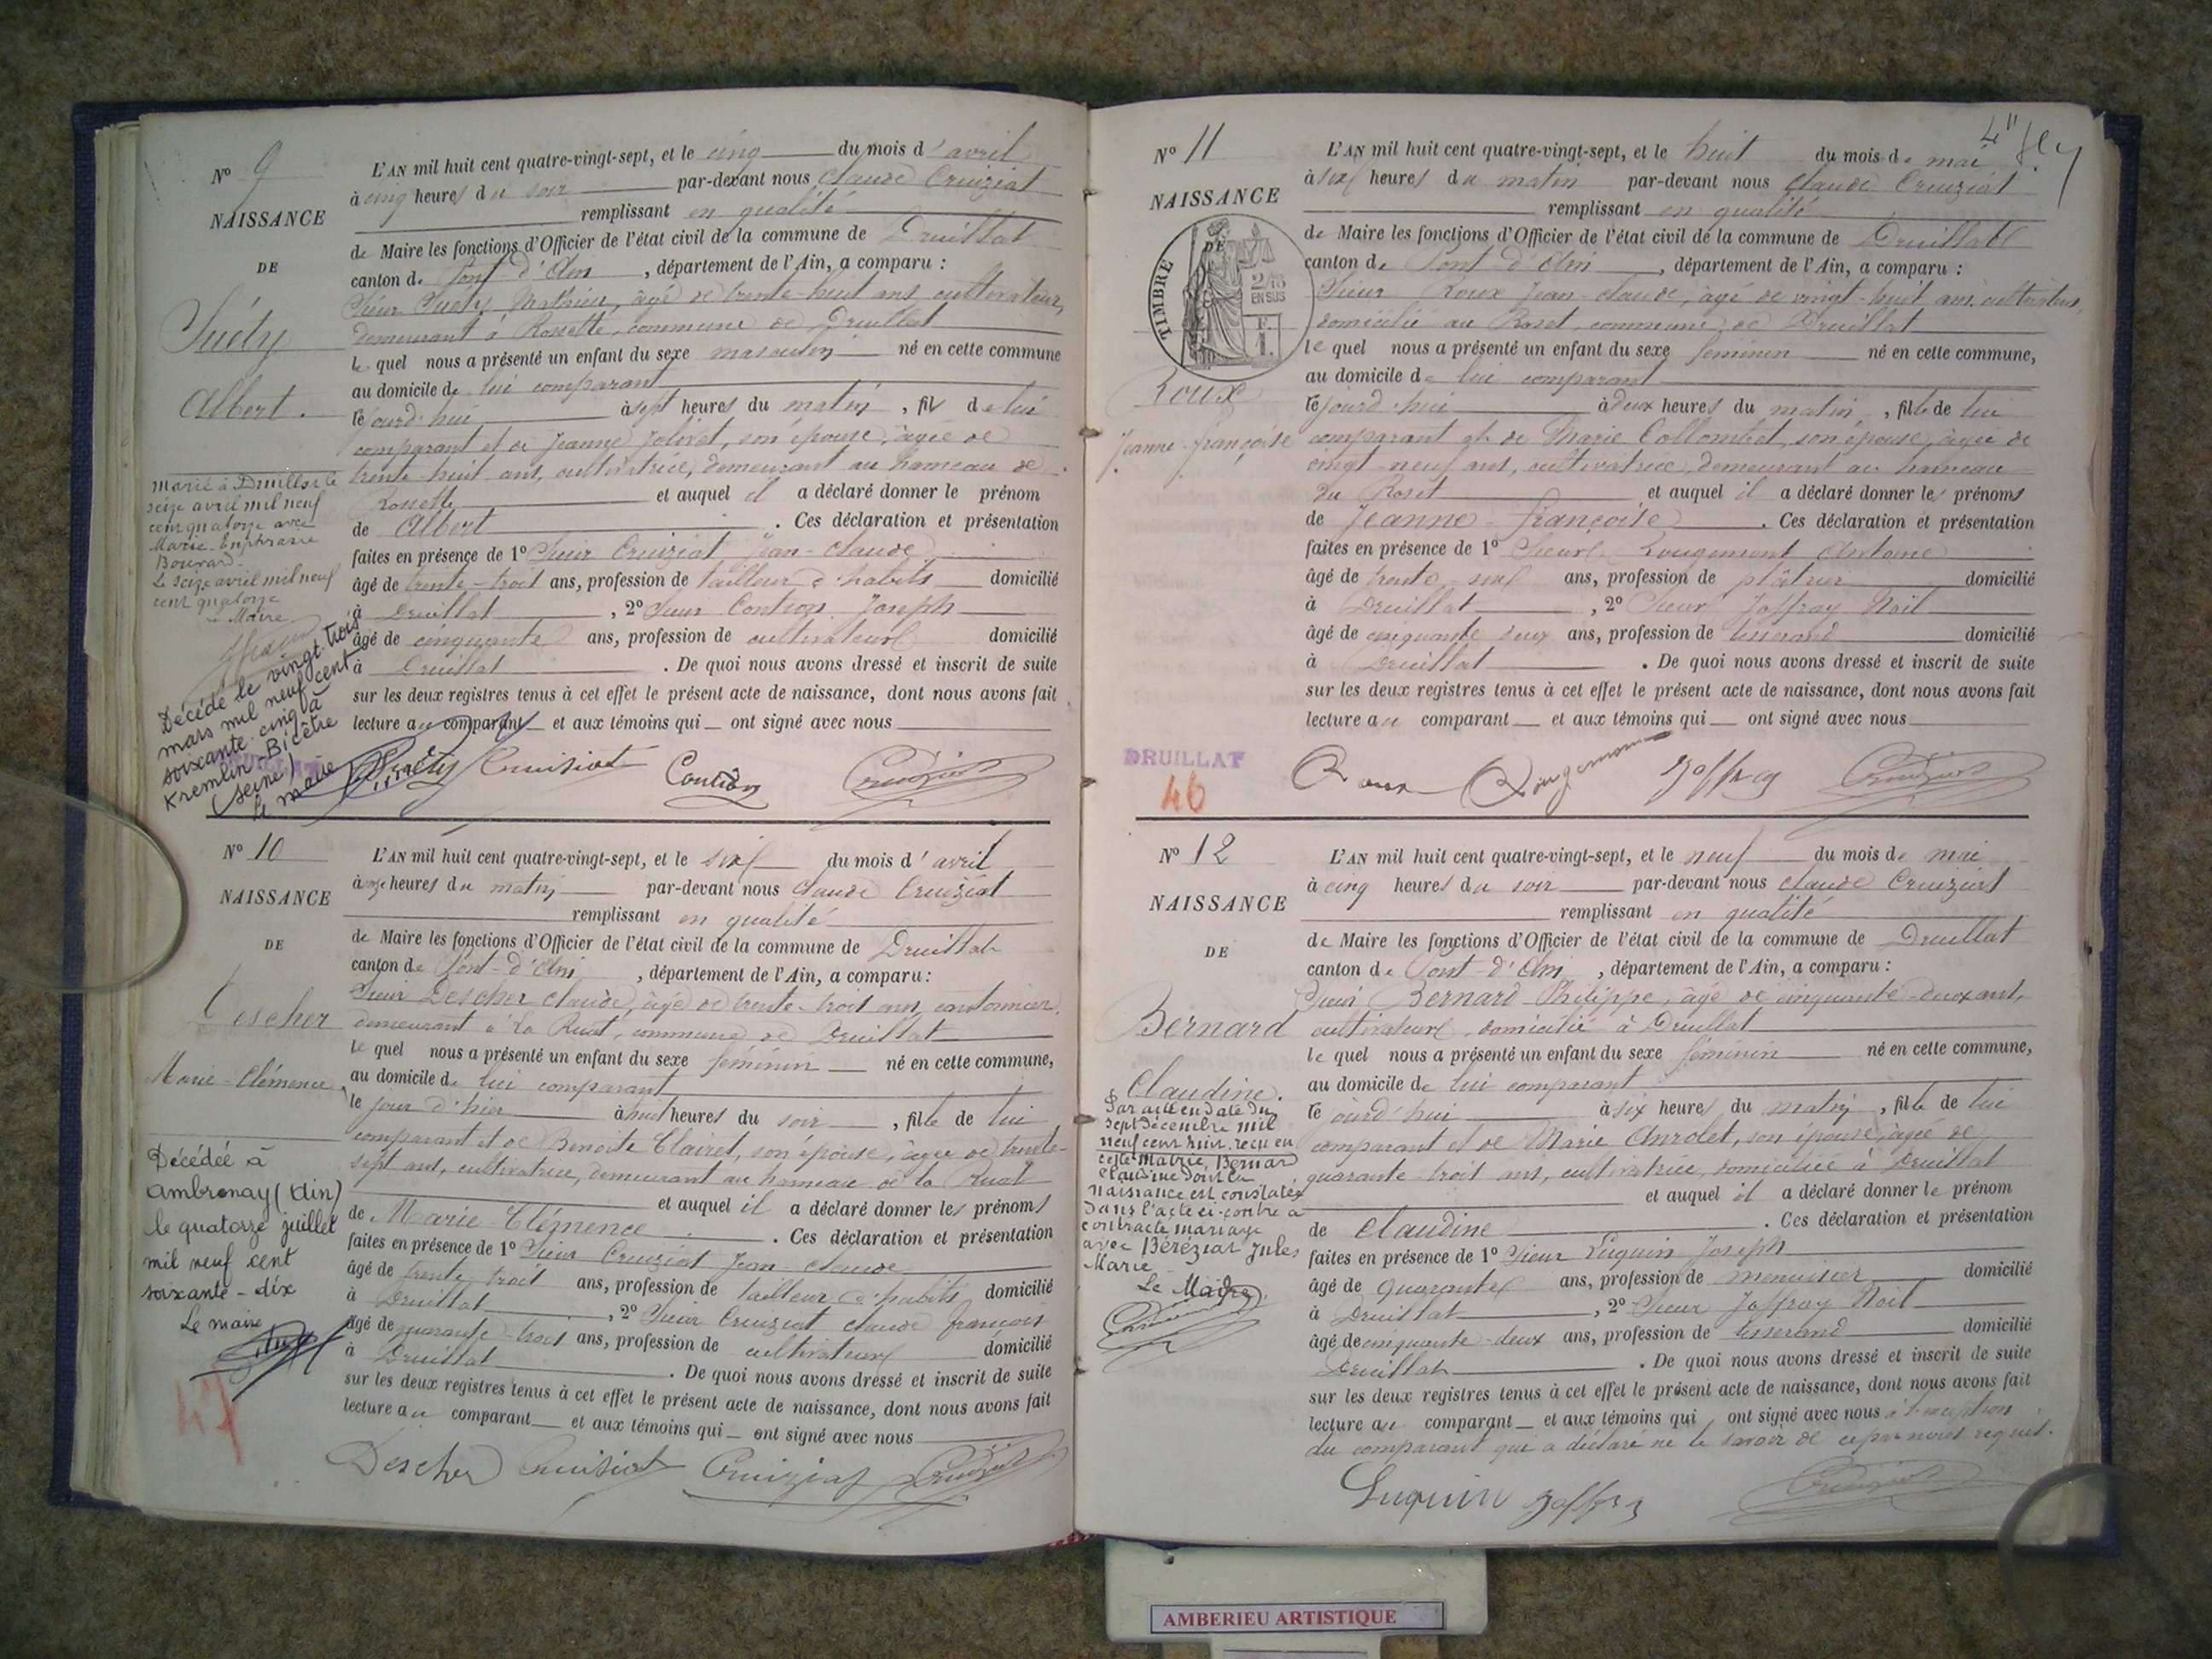 N° 9
NAISSANCE
DE
Suéty
Albert.
marié à Druillat le
seize avril mil neuf
cent quatorze avec
Marie-Euphrasie
Bouvard.
Le seize avril mil neuf
cent quatorze
Maire
Décédé le vingt-trois
mars mil neuf cent
soixante-cinq à
Kremlin-Bicêtre
(Seine)
le maire
L'AN mil huit cent quatre-vingt-sept, et le cinq du mois d'avril
à cinq heures du soir par-devant nous Claude Cruiziat
remplissant en qualité
de Maire les fonctions d'Officier de l'état civil de la commune de Druillat
canton de Pont-d'Ain, département de l'Ain, a comparu :
Sieur Suéty Mathieu, âgé de trente-huit ans, cultivateur,
demeurant à Rossette, commune de Druillat
lequel nous a présenté un enfant du sexe masculin né en cette commune
au domicile de lui comparant
cejourd'hui à sept heures du matin, fils de lui
comparant et de Jeanne Jolivet, son épouse, âgée de
trente huit ans, cultivatrice, demeurant au hameau de
Rossette et auquel il a déclaré donner le prénom
de Albert. Ces déclaration et présentation
faites en présence de 1° Sieur Cruiziat Jean-Claude
âgé de trente-trois ans, profession de tailleur d'habits domicilié
à Druillat, 2° Sieur Contion Joseph
âgé de cinquante ans, profession de cultivateur domicilié
à Druillat. De quoi nous avons dressé et inscrit de suite
sur les deux registres tenus à cet effet le présent acte de naissance, dont nous avons fait
lecture au comparant et aux témoins qui ont signé avec nous
Suéty Cruisiat Contion Cruiziat
N° 10
NAISSANCE
DE
Descher
Marie-Clémence
Décédée à
Ambronay (Ain)
le quatorze juillet
mil neuf cent
soixante-dix
Le maire
47
L'AN mil huit cent quatre-vingt-sept, et le six du mois d'avril
à onze heures du matin par-devant nous Claude Cruiziat
remplissant en qualité
de Maire les fonctions d'Officier de l'état civil de la commune de Druillat
canton de Pont-d'Ain, département de l'Ain, a comparu :
Sieur Descher Claude, âgé de trente-trois ans, cantonnier,
demeurant à La Ruat, commune de Druillat
lequel nous a présenté un enfant du sexe féminin né en cette commune,
au domicile de lui comparant
le jour d'hier à huit heures du soir, fille de lui
comparant et de Benoite Clairet, son épouse, âgée de trente-
sept ans, cultivatrice, demeurant au hameau de la Ruat
et auquel il a déclaré donner les prénoms
de Marie Clémence. Ces déclaration et présentation
faites en présence de 1° Sieur Cruiziat Jean-Claude
âgé de trente trois ans, profession de tailleur d'habits domicilié
à Druillat, 2° Sieur Cruiziat Claude François
âgé de quarante-trois ans, profession de cultivateur domicilié
à Druillat. De quoi nous avons dressé et inscrit de suite
sur les deux registres tenus à cet effet le présent acte de naissance, dont nous avons fait
lecture au comparant et aux témoins qui ont signé avec nous
Descher Cruisiat Cruiziat Cruiziat
4"
N° 11
NAISSANCE
DE
TIMBRE
2/10
EN SUS
F.
1.
Roux
Jeanne-Françoise
DRUILLAT
46
L'AN mil huit cent quatre-vingt-sept, et le huit du mois de mai
à six heures du matin par-devant nous Claude Cruiziat
remplissant en qualité
de Maire les fonctions d'Officier de l'état civil de la commune de Druillat
canton de Pont d'Ain, département de l'Ain, a comparu :
Sieur Roux Jean-Claude, âgé de vingt-huit ans, cultivateur,
domicilié au Roset, commune de Druillat
lequel nous a présenté un enfant du sexe féminin né en cette commune,
au domicile de lui comparant
cejourd'hui à deux heures du matin, fille de lui
comparant et de Marie Collombet, son épouse, âgée de
vingt-neuf ans, cultivatrice, demeurant au hameau
du Roset et auquel il a déclaré donner les prénoms
de Jeanne-Françoise. Ces déclaration et présentation
faites en présence de 1° Sieur Rougemont Antoine
âgé de trente six ans, profession de plâtrier domicilié
à Druillat, 2° Sieur Joffray Noël
âgé de cinquante deux ans, profession de tisserand domicilié
à Druillat. De quoi nous avons dressé et inscrit de suite
sur les deux registres tenus à cet effet le présent acte de naissance, dont nous avons fait
lecture au comparant et aux témoins qui ont signé avec nous
Roux Rougemont Joffray Cruiziat
N° 12
NAISSANCE
DE
Bernard
Claudine.
Par acte en date du
sept décembre mil
neuf cent huit, reçu en
cette Mairie, Bernard
Claudine dont la
naissance est constatée
dans l'acte ci-contre a
contracté mariage
avec Béréziat Jules
Marie
Le Maire
L'AN mil huit cent quatre-vingt-sept, et le neuf du mois de mai
à cinq heures du soir par-devant nous Claude Cruiziat
remplissant en qualité
de Maire les fonctions d'Officier de l'état civil de la commune de Druillat
canton de Pont-d'Ain, département de l'Ain, a comparu :
Sieur Bernard Philippe, âgé de cinquante-deux ans,
cultivateur, domicilié à Druillat
lequel nous a présenté un enfant du sexe féminin né en cette commune,
au domicile de lui comparant
cejourd'hui à six heures du matin, fille de lui
comparant et de Marie, son épouse, âgée de
quarante-trois ans, cultivatrice, domiciliée à Druillat
et auquel il a déclaré donner le prénom
de Claudine. Ces déclaration et présentation
faites en présence de 1° Sieur Luquin Joseph
âgé de quarante ans, profession de menuisier domicilié
à Druillat, 2° Sieur Joffray Noël
âgé de cinquante-deux ans, profession de tisserand domicilié
Druillat. De quoi nous avons dressé et inscrit de suite
sur les deux registres tenus à cet effet le présent acte de naissance, dont nous avons fait
lecture au comparant et aux témoins qui ont signé avec nous à l'exception
du comparant qui a déclaré ne le savoir de ce par nous requis.
Luquin Joffray Cruiziat
AMBERIEU ARTISTIQUE